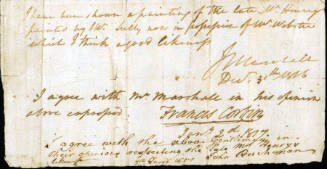 I have been shown a painting of the late Mr Henry
painted by Mr Sully, now in possession of Mr Webster
which I think a good likeness
J Marshall
Decr 30th 1816
I agree with Mr Marshall in his opinion
above expressed
Francis Corbin
Jany 2d 1817
I agree with the above gentlemen in
their opinions respecting the late Mr Henrys
likeness
John Buchanan